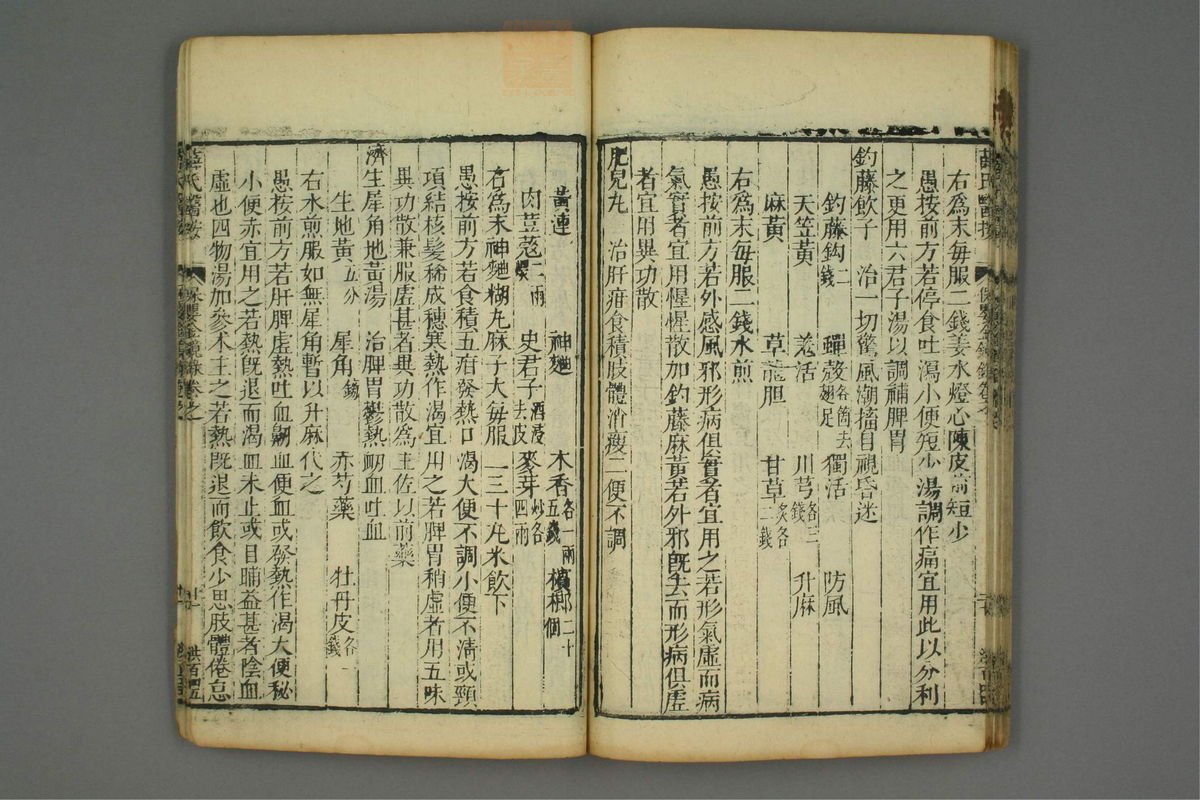 右為末每服二錢姜水燈心陳皮煎短少
愚按前方若停食吐瀉小便短少湯調作痛宜用此以分利
之更用六君子湯以調補脾胃
釣藤飲子 治一切驚風潮搐目視昏迷
釣藤鈎二錢 蟬殼各箇去翅足 獨活 防風
天竺黄 羗活 川芎各三錢 升麻
麻黄 草龍胆 甘草炙各二錢
右為末每服二錢水煎
愚按前方若外感風邪形病俱實者宜用之若形氣虛而病
氣實者宜用惺惺散加釣藤麻黄若外邪既去而形病俱虛
者宜用異功散
肥兒丸 治肝疳食積肢體消瘦二便不調
黄連 神麯 木香各一兩五錢 檳榔二十個
肉荳蔻二兩煨 史君子酒浸去皮 麥芽炒各四兩
右為末神麯糊丸麻子大每服一三十丸米飲下
愚按前方若食積五疳發熱口渴大便不調小便不清或頸
項結核髮稀成穗寒熱作渴宜用之若脾胃稍虛者用五味
異功散兼服虛甚者異功散為主佐以前藥
濟生犀角地黄湯 治脾胃鬱熱衂血吐血
生地黄五分 犀角鎊 赤芍藥 牡丹皮各一錢
右水煎服如無犀角暫以升麻代之
愚按前方若肝脾虛熱吐血衂血便血或發熱作渴大便秘
小便赤宜用之若熱既退而渴血未止或日晡益甚者陰血
虛也四物湯加參术主之若熱既退而飲食少思肢體倦怠
薛氏醫按
保嬰金鏡錄卷之